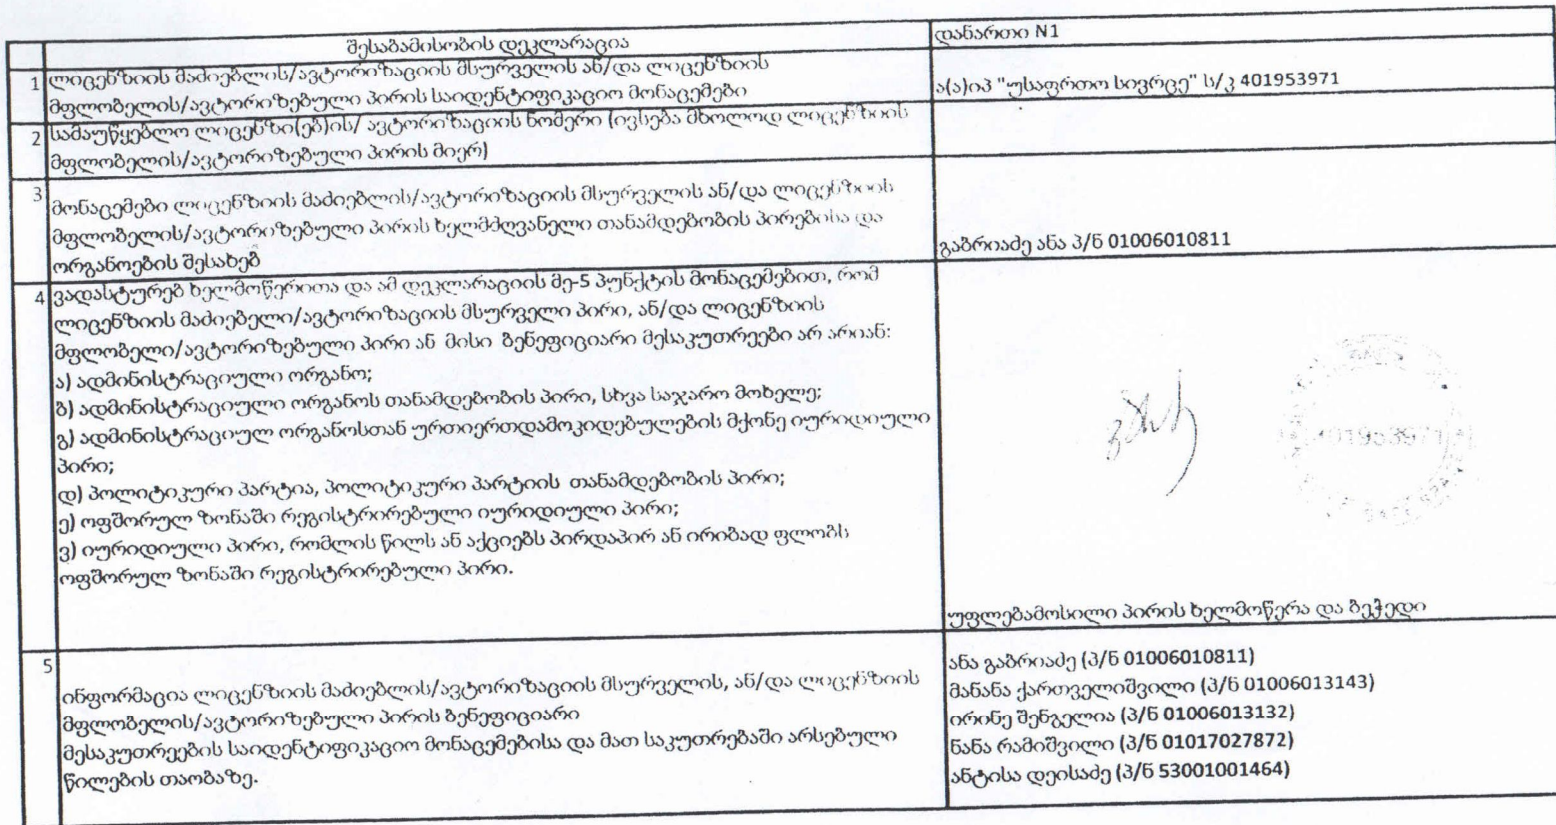 შესაბამისობის დეკლარაცია
დანართი N1
1 ლიცენზიის მაძიებლის/ავტორიზაციის მსურველის ან/და ლიცენზიის
მფლობელის/ავტორიზებული პირის საიდენტიფიკაციო მონაცემები
ა(ა)იპ "უსაფრთო სივრცე" ს/კ 401953971
2 სამაუწყებლო ლიცენზი(ებ)ის/ ავტორიზაციის ნომერი (ივსება მხოლოდ ლიცენზიის
მფლობელის/ავტორიზებული პირის მიერ)
3 მონაცემები ლიცენზიის მაძიებლის/ავტორიზაციის მსურველის ან/და ლიცენზიის
მფლობელის/ავტორიზებული პირის ხელმძღვანელი თანამდებობის პირებისა და
ორგანოების შესახებ
გაბრიაძე ანა პ/ნ 01006010811
4 ვადასტურებ ხელმოწერითა და ამ დეკლარაციის მე-5 პუნქტის მონაცემებით, რომ
ლიცენზიის მაძიებელი/ავტორიზაციის მსურველი პირი, ან/და ლიცენზიის
მფლობელი/ავტორიზებული პირი ან მისი ბენეფიციარი მესაკუთრეები არ არიან:
ა) ადმინისტრაციული ორგანო;
ბ) ადმინისტრაციული ორგანოს თანამდებობის პირი, სხვა საჯარო მოხელე;
გ) ადმინისტრაციულ ორგანოსთან ურთიერთდამოკიდებულების მქონე იურიდიული
პირი;
დ) პოლიტიკური პარტია, პოლიტიკური პარტიის თანამდებობის პირი;
ე) ოფშორულ ზონაში რეგისტრირებული იურიდიული პირი;
ვ) იურიდიული პირი, რომლის წილს ან აქციებს პირდაპირ ან ირიბად ფლობს
ოფშორულ ზონაში რეგისტრირებული პირი.
უფლებამოსილი პირის ხელმოწერა და ბეჭედი
5
ინფორმაცია ლიცენზიის მაძიებლის/ავტორიზაციის მსურველის, ან/და ლიცენზიის
მფლობელის/ავტორიზებული პირის ბენეფიციარი
მესაკუთრეების საიდენტიფიკაციო მონაცემებისა და მათ საკუთრებაში არსებული
წილების თაობაზე.
ანა გაბრიაძე (პ/ნ 01006010811)
მანანა ქართველიშვილი (პ/ნ 01006013143)
ირინე შენგელია (პ/ნ 01006013132)
ნანა რამიშვილი (პ/ნ 01017027872)
ანტისა დეისაძე (პ/ნ 53001001464)